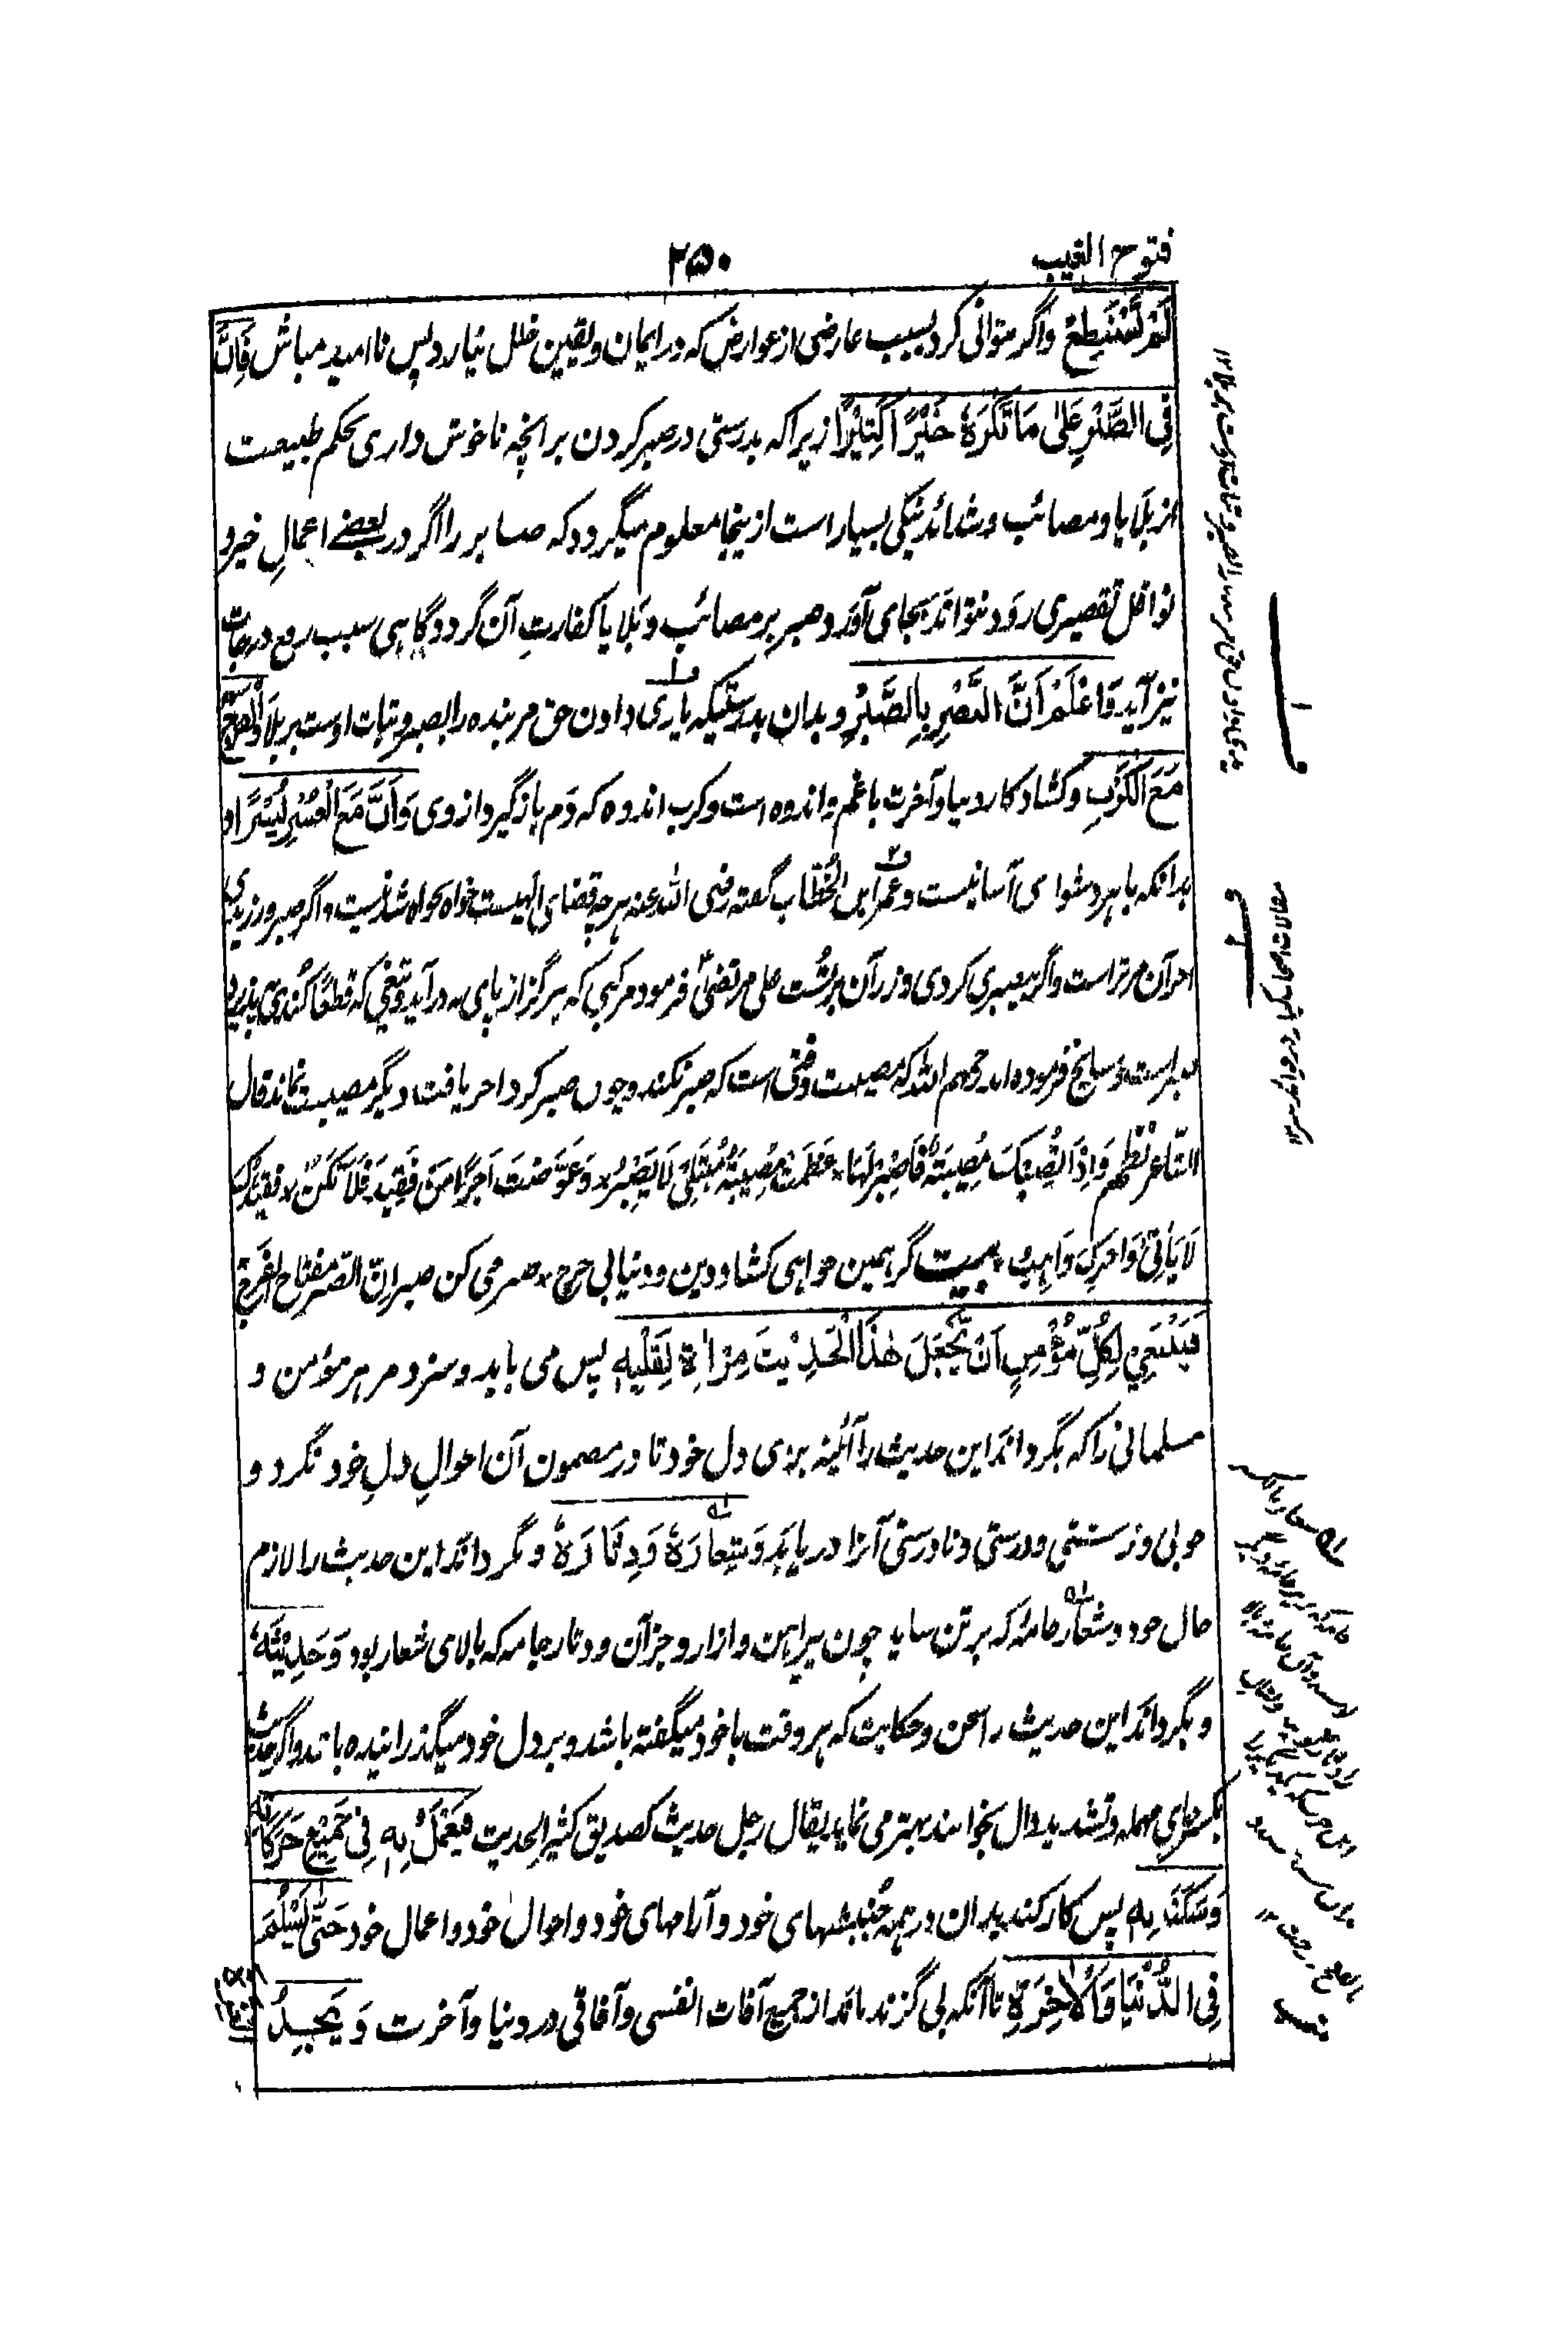 فتوح الغیب
۲۵۰
لَمْ تَسْتَطِعْ واگر نتوانی کرد بسبب عارضی از عوارض که در ایمان و یقین خلل نیارد پس ناامید مباش فَاِنَّ
فِی الصَّبْرِ عَلٰی مَا تَکْرَهُ خَیْرًا کَثِیْرًا زیراکه بدرستی در صبر کردن بر آنچه ناخوش داری بحکم طبیعت
از بلایا و مصائب و شدائد نیکی بسیار است ازینجا معلوم میگردد که صابر را اگر در بعضے اعمالِ خیر و
نوافل تقصیری رود نتواند بجای آورد صبر بر مصائب و بلایا کفارتِ آن گردد و گاہی سبب رفع درجات
نیز آید وَاعْلَمْ اَنَّ النَّصْرَ بِالصَّبْرِ و بدان بدرستیکه یاری دادن حق مر بنده را بصبر و ثبات اوست بر بلا وَالْفَرَجَ
مَعَ الْکَرْبِ و کشاد کار دنیا و آخرت با غم و اندوه است و کرب اندوه که دَم باز گیرد از وی وَاَنَّ مَعَ الْعُسْرِ یُسْرًا و
بدانکه با هر دشواری آسانیست و عمر ابن الخطّاب گفته رضی الله عنه هر چه قضای الٰهیست خواه نخواه شدنیست اگر صبر ورزیدی
اجر آن مر تراست واگر بیصبری کردی وزر آن بر تُست علی مرتضیٰ فرمود مرکبی که هرگز از پای نه در آید و تیغی که قطعًا کُندی نپذیرد
صبر است و مشایخ فرموده اند رحمهم الله که مصیبت وقتی است که صبر نکند و چون صبر کرد اجر یافت دیگر مصیبت نماند قال
الشاعر نظم وَاِذَا تُصِبْکَ مُصِیْبَةٌ فَاصْبِرْ لَهَا ٭ عَظُمَتْ مُصِیْبَةُ مُبْتَلًی لَا یَصْبِرُ ٭ وَعُوِّضْتَ اَجْرًا مِنْ فَقِیْدٍ فَلَا تَکُنْ ٭ فَقِیْدُکَ
لَا یَأْتِیْ وَاَجْرُکَ ذَاهِبٌ ٭ بیت گر همین خواهی کشاد دین و دنیا بی حرج ٭ صبر می کن صبر ان الصبر مفتاح الفرج
فَیَنْبَغِیْ لِکُلِّ مُؤْمِنٍ اَنْ یَّجْعَلَ هٰذَا الْحَدِیْثَ مِرْاٰةً لِّقَلْبِهٖ پس می باید و سزد مر هر مؤمن و
مسلمانی را که بگرداند این حدیث را آئینه برای دل خود تا در مضمون آن احوالِ دلِ خود نگرد و
خوبی و زشتی و درستی و نادرستی آنرا دریابد وَشِعَارَهٗ وَدِثَارَهٗ و بگرداند این حدیث را لازم
حال خود و شعار جامهٔ که بر تن ساید چون پیراهن و ازار و جز آن و دثار جامه که بالای شعار بود وَحَدِیْثَهٗ
و بگرداند این حدیث را سخن و حکایت که هر وقت با خود میگفته باشد و بر دل خود میگذرانیده باشد و اگر حدیث
بکسر حای مهمله و تشدید دال بخوانند بهتر می نماید یقال رجل حدیث کصدیق کثیر الحدیث فَیَعْمَلُ بِهٖ فِیْ جَمِیْعِ حَرَکَاتِهٖ
وَسَکَنَاتِهٖ پس کار کند بدان در همه جُنبشهای خود و آرامهای خود و احوال خود و اعمال خود حَتّٰی یَسْلَمَ
فِی الدُّنْیَا وَالْاٰخِرَةِ تا آنکه بی گزند ماند از جمیع آفات انفسی و آفاقی در دنیا و آخرت وَ یَجِدُ